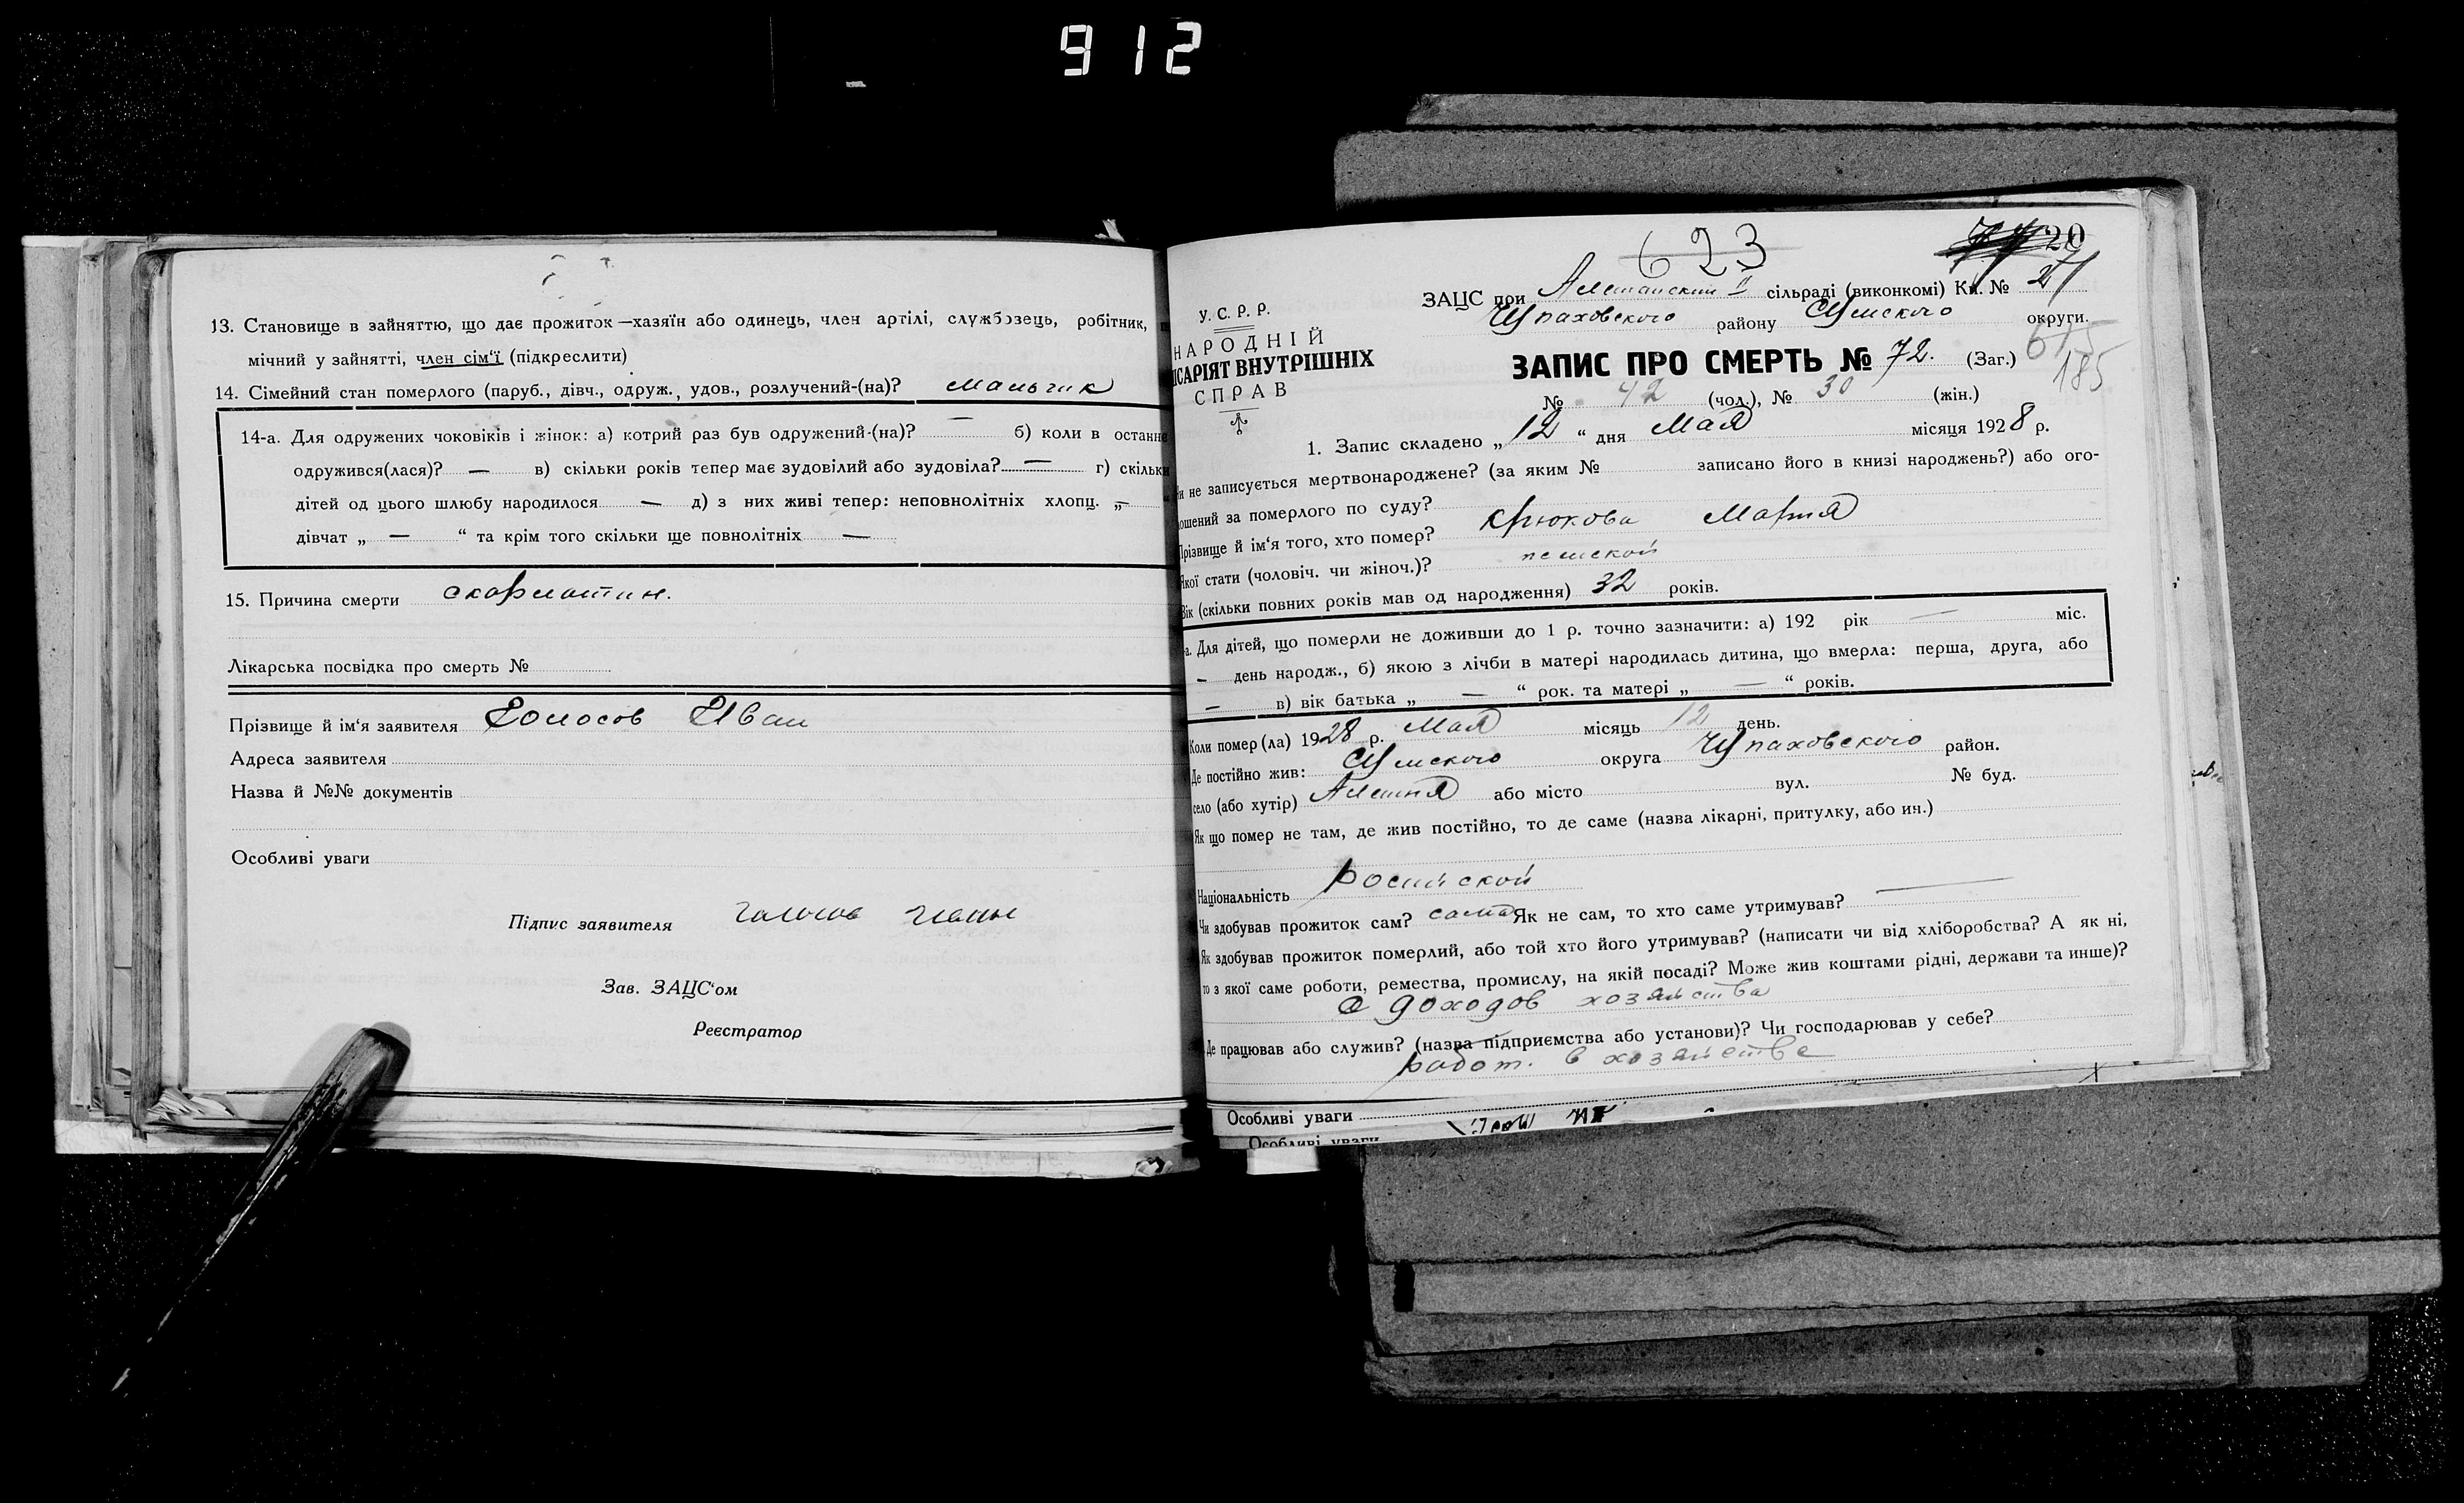 912
13. Становище в зайняттю, що дає прожиток—хазяїн або одинець, член артілі, службовець, робітник,
мічний у зайнятті, член сім'ї (підкреслити)
14. Сімейний стан померлого (паруб., дівч., одруж., удов., розлучений-(на)? Мальчик
14-а. Для одружених чоковіків і жінок: а) котрий раз був одружений-(на)? — б) коли в останнє
одружився(лася)? — в) скільки років тепер має зудовілий або зудовіла? — г) скільки
дітей од цього шлюбу народилося — д) з них живі тепер: неповнолітніх хлопц. „ —
дівчат „ — “ та крім того скільки ще повнолітніх —
15. Причина смерти скарлатин.
Лікарська посвідка про смерть №
Прізвище й ім'я заявителя Голосов Иван
Адреса заявителя
Назва й №№ документів
Особливі уваги
Підпис заявителя
Зав. ЗАЦС'ом
Реєстратор
623
20
У. С. Р. Р.
НАРОДНІЙ
ІСАРІЯТ ВНУТРІШНІХ
СПРАВ
ЗАЦС при Алешанский II сільраді (виконкомі) Кн. №
Чупаховского району Сумского округи.
ЗАПИС ПРО СМЕРТЬ № 72. (Заг.) 615
185
№ 42 (чол.), № 30 (жін.)
1. Запис складено „12“ дня Мая місяця 1928 р.
и не записується мертвонароджене? (за яким № записано його в книзі народжень?) або ого-
ошений за померлого по суду?
Прізвище й ім'я того, хто помер? Крюкова Мария
Якої стати (чоловіч. чи жіноч.)?
Вік (скільки повних років мав од народження) 32 років.
а. Для дітей, що померли не доживши до 1 р. точно зазначити: а) 192 рік — міс.
— день народж., б) якою з лічби в матері народилась дитина, що вмерла: перша, друга, або
— в) вік батька „ — “ рок. та матері „ — “ років.
Коли помер(ла) 1928 р. Мая місяць 12 день.
Де постійно жив: Сумского округа Чупаховского район.
село (або хутір) Алешня або місто вул. № буд.
Як що помер не там, де жив постійно, то де саме (назва лікарні, притулку, або ин.)
Національність Росийской
Чи здобував прожиток сам? сама Як не сам, то хто саме утримував? —
Як здобував прожиток померлий, або той хто його утримував? (написати чи від хліборобства? А як ні,
то з якої саме роботи, ремества, промислу, на якій посаді? Може жив коштами рідні, держави та инше)?
С доходов хозяйства
Де працював або служив? (назва підприємства або установи)? Чи господарював у себе?
работ. в хозяйстве
Особливі уваги
Особливі уваги